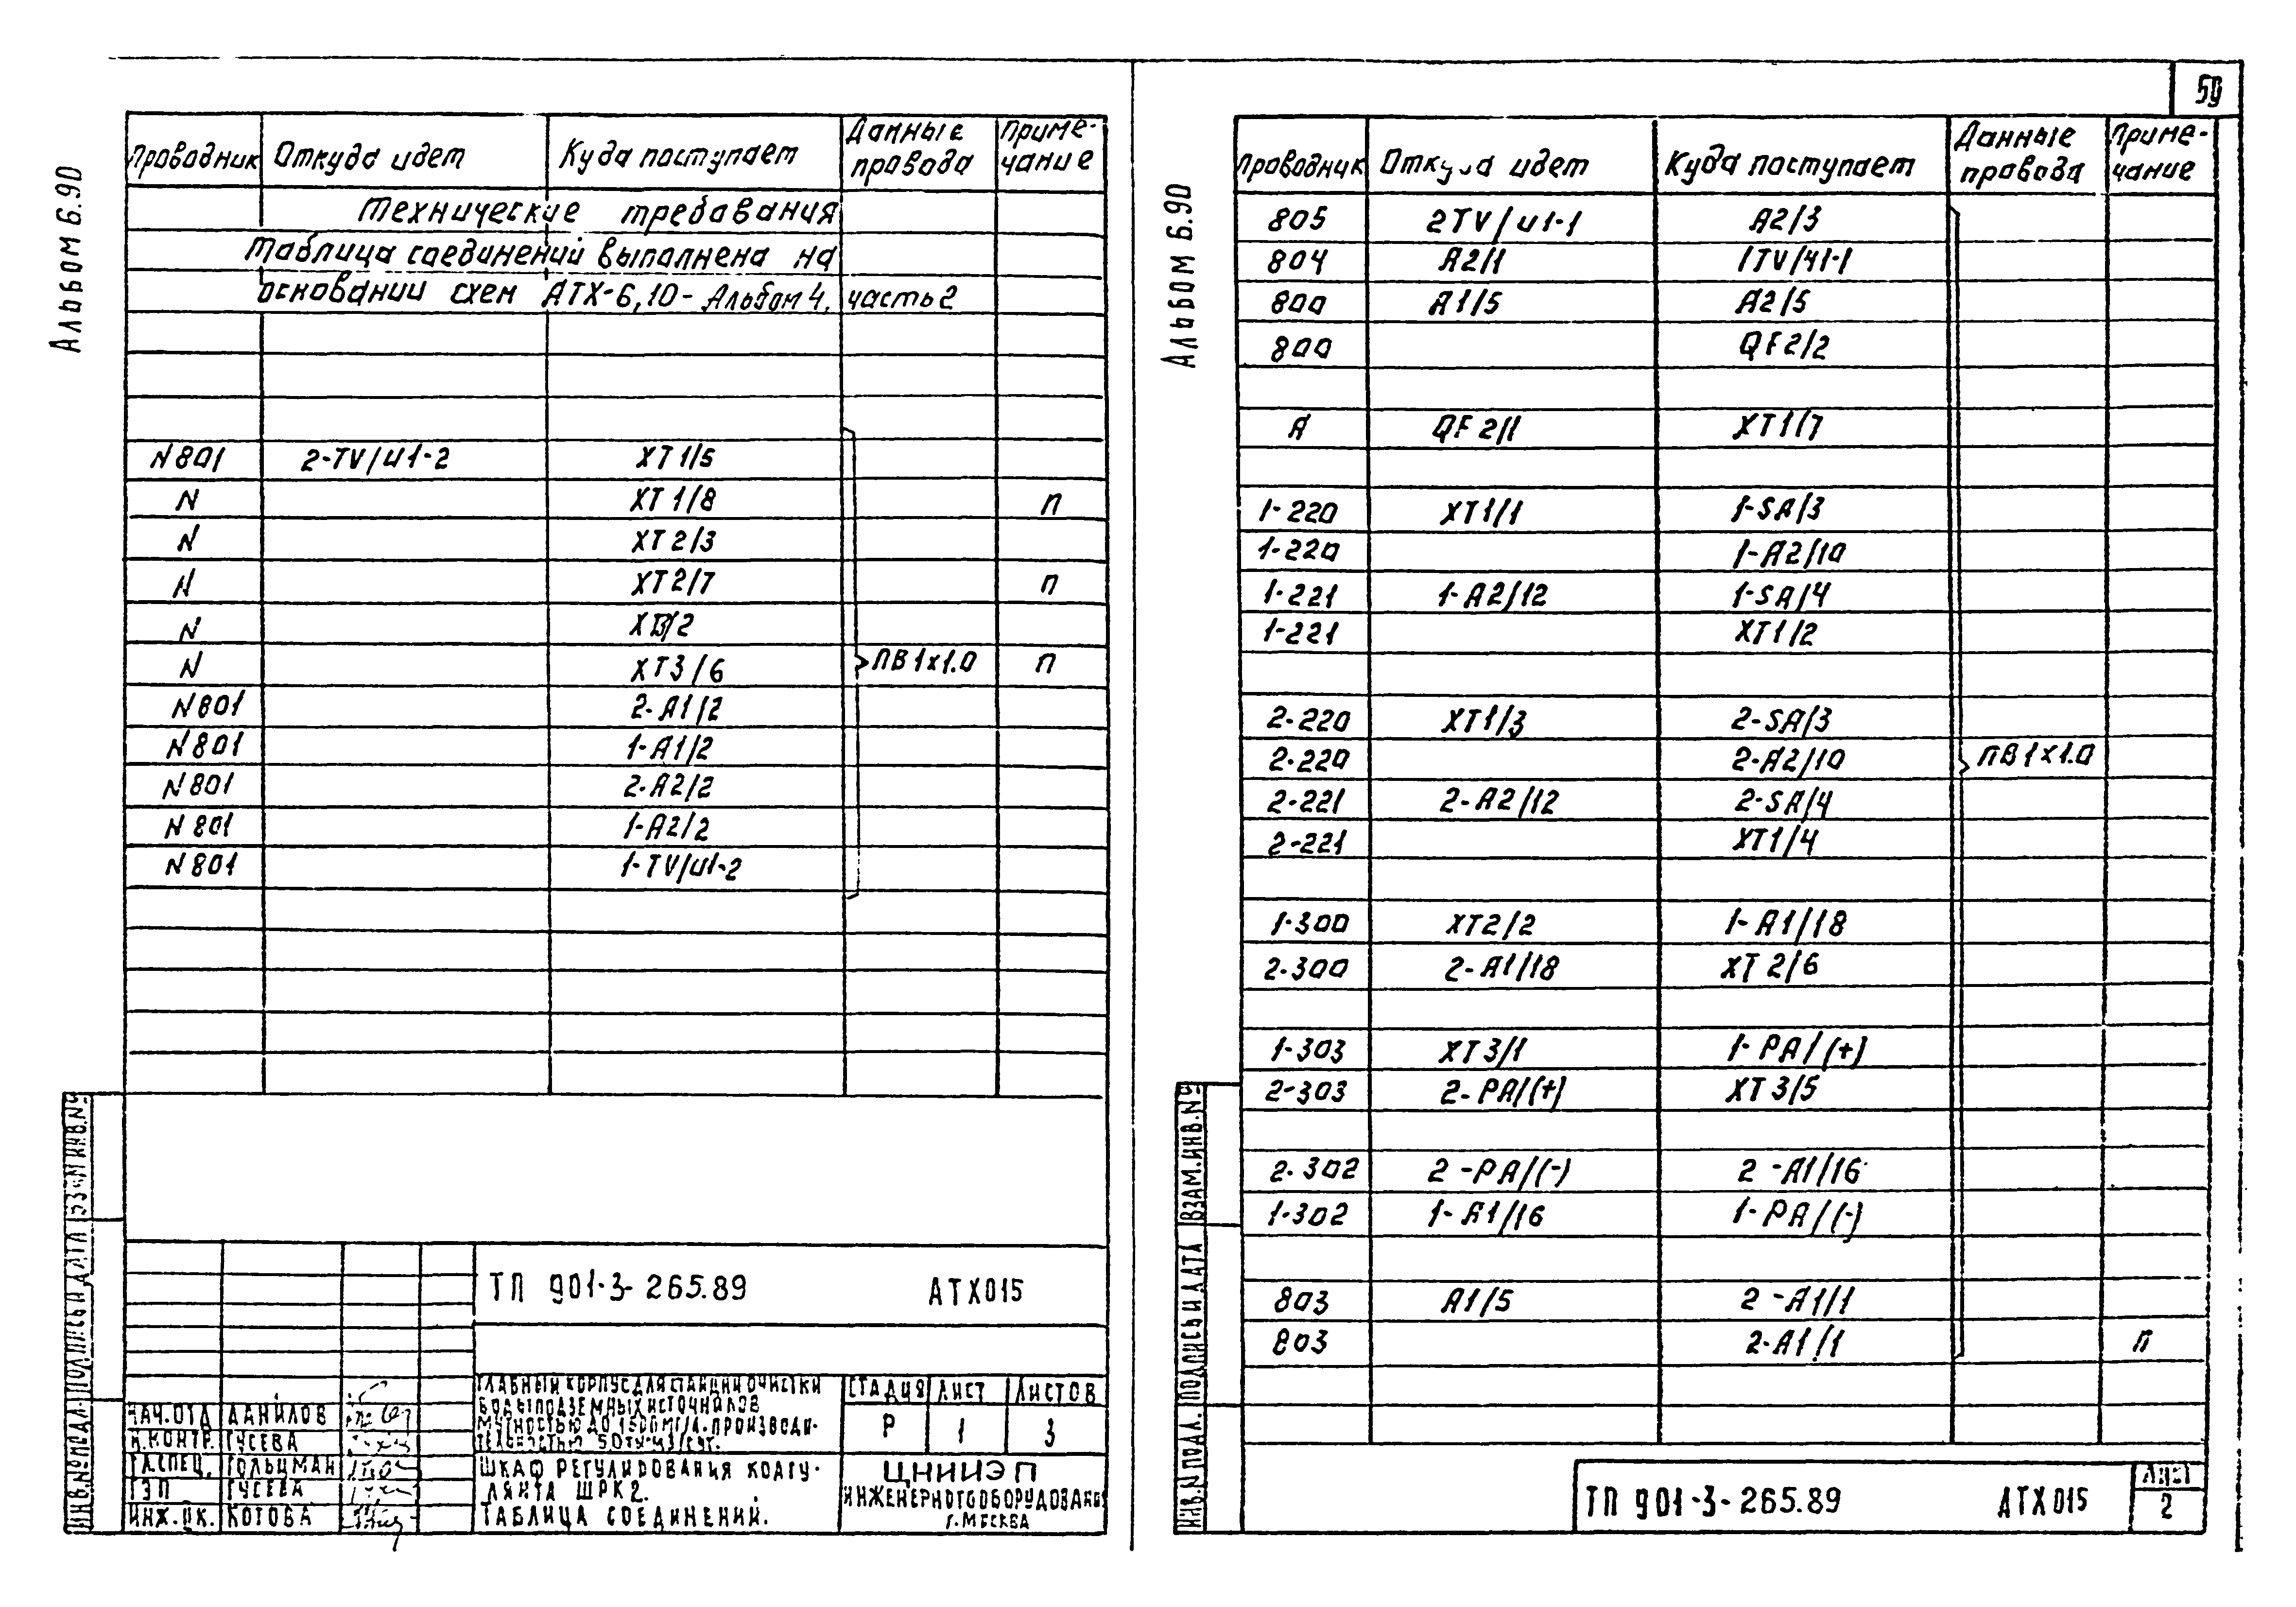 Альбом 6.90
Проводник Откуда идет Куда поступает Данные провода Приме-чание
Технические требования
Таблица соединений выполнена на
основании схем АТХ-6,10- Альбом 4, часть 2
N801 2-TV/и1-2 XT1/5
N XT1/8 п
N XT2/3
N XT2/7 п
N /2
N XT3/6 ПВ1х1.0 п
N801 2-А1/2
N801 1-А1/2
N801 2-А2/2
N801 1-А2/2
N801 1-TV/и1-2
ТП 901-3-265.89 АТХ015
ГЛАВНЫЙ КОРПУС ДЛЯ СТАНЦИИ ОЧИСТКИ
ВОДЫ ПОДЗЕМНЫХ ИСТОЧНИКОВ
МУТНОСТЬЮ ДО 1500МГ/Л. ПРОИЗВОДИ-
ТЕЛЬНОСТЬЮ
СТАДИЯ ЛИСТ ЛИСТОВ
Р 1 3
НАЧ.ОТД ДАНИЛОВ
Н.КОНТР. ГУСЕВА
ГЛ.СПЕЦ. ГОЛЬЦМАН
ГЭП ГУСЕВА
ИНЖ. КОТОВА
ШКАФ РЕГУЛИРОВАНИЯ КОАГУ-
ЛЯНТА ШРК2.
ТАБЛИЦА СОЕДИНЕНИЙ.
ЦНИИЭП
ИНЖЕНЕРНОГО ОБОРУДОВАНИЯ
Г. МОСКВА
ИНВ.№ПОДЛ. ПОДПИСЬ И ДАТА ВЗАМ ИНВ.№
59
Альбом 6.90
Проводник Откуда идет Куда поступает Данные провода Приме-чание
805 2TV/и1-1 А2/3
804 А2/1 1TV/41-1
800 А1/5 А2/5
800 QF2/2
А QF2/1 XT1/7
1-220 XT1/1 1-SA/3
1-220 1-А2/10
1-221 1-А2/12 1-SA/4
1-221 XT1/2
2-220 XT1/3 2-SA/3
2-220 2-А2/10 ПВ1х1.0
2-221 2-А2/12 2-SA/4
2-221 XT1/4
1-300 XT2/2 1-А1/18
2-300 2-А1/18 XT2/6
1-303 XT3/1 1-PA/(+)
2-303 2-PA/(+) XT3/5
2-302 2-PA/(-) 2-А1/16
1-302 1-А1/16 1-PA/(-)
803 А1/5 2-А1/1
803 2-А1/1 п
ИНВ.№ПОДЛ. ПОДПИСЬ И ДАТА ВЗАМ.ИНВ.№
ТП 901-3-265.89 АТХ015
Лист
2